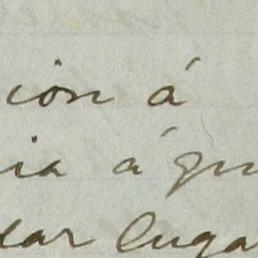 ion á
ia á qu
dar luga